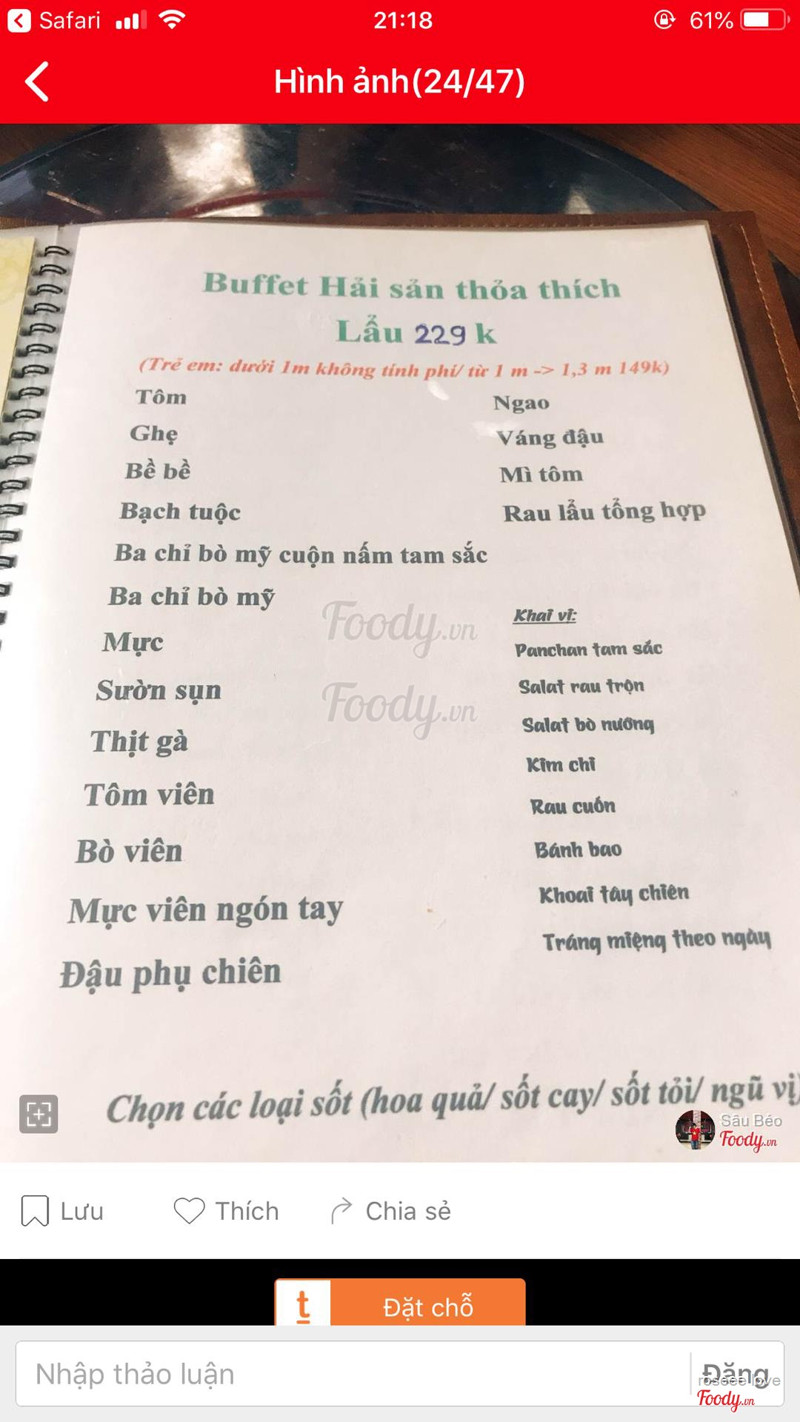 Safari
21:18
61%
Hình ảnh(24/47)
Buffet Hải sản thỏa thích
Lẩu 229 k
(Trẻ em: dưới 1m không tính phí/ từ 1 m -> 1,3 m 149k)
Tôm
Ghẹ
Bề bề
Bạch tuộc
Ba chỉ bò mỹ cuộn nấm tam sắc
Ba chỉ bò mỹ
Mực
Sườn sụn
Thịt gà
Tôm viên
Bò viên
Mực viên ngón tay
Đậu phụ chiên
Ngao
Váng đậu
Mì tôm
Rau lẩu tổng hợp
Khai vị:
Panchan tam sắc
Salat rau trộn
Salat bò nướng
Kim chi
Rau cuốn
Bánh bao
Khoai tây chiên
Tráng miệng theo ngày
Foody.vn
Foody.vn
Chọn các loại sốt (hoa quả/ sốt cay/ sốt tỏi/ ngũ vị)
Sâu Béo
Foody.vn
Lưu
Thích
Chia sẻ
t
Đặt chỗ
Nhập thảo luận
Đăng
Foody.vn